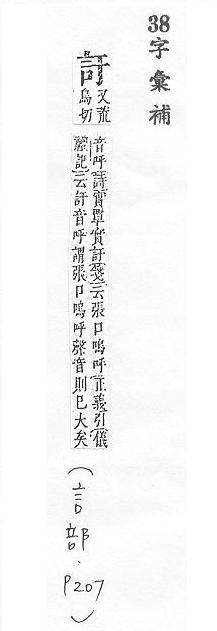 38 字彙補
訏
又荒
烏切
音呼詩實覃實訏箋云張口嗚呼正義引儀
禮記云訏音呼謂張口嗚呼聲音則已大矣
(言部.P207)